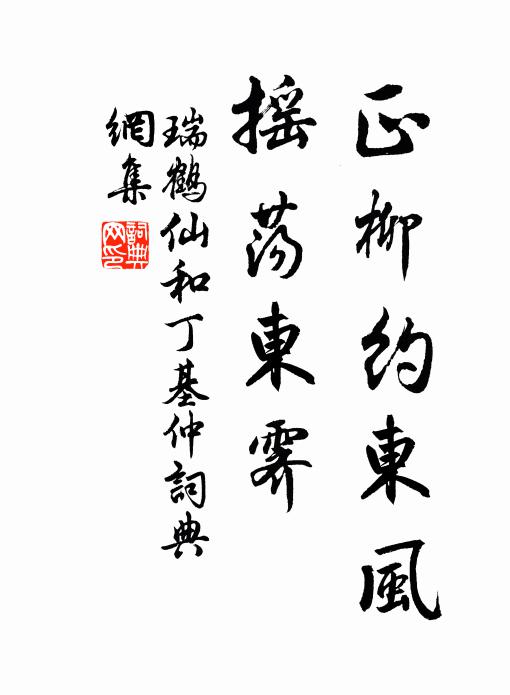 正柳約東風
搖蕩東霽
瑞鶴仙和丁基仲詞典
網集
詞典网印